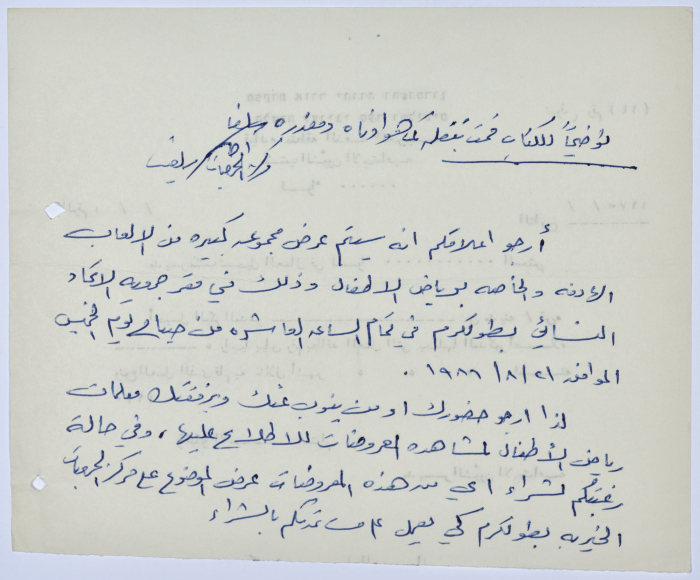 توضيحاً للكتاب قمت بنقله كما هو ادناه ومصدره سلفيت
مركز الجمعيات / سلفيت
أرجو اعلامكم انه سيتم عرض مجموعه كبيره من الالعاب
والخاصه برياض الاطفال وذلك في مقر جمعيه الاتحاد
النسائي بطولكرم في تمام الساعه العاشره من صباح يوم الخميس
الموافق ٢١/٨/١٩٨٦ .
لذا ارجو حضورك او من ينوب عنك وبرفقتك معلمات
رياض الأطفال لمشاهده المعروضات للاطلاع عليها ، وفي حالة
رغبتكم لشراء اي من هذه المعروضات عرض الموضوع على مركز الجمعيات
الخيريه بطولكرم كي يعمل على مساعدتكم بالشراء